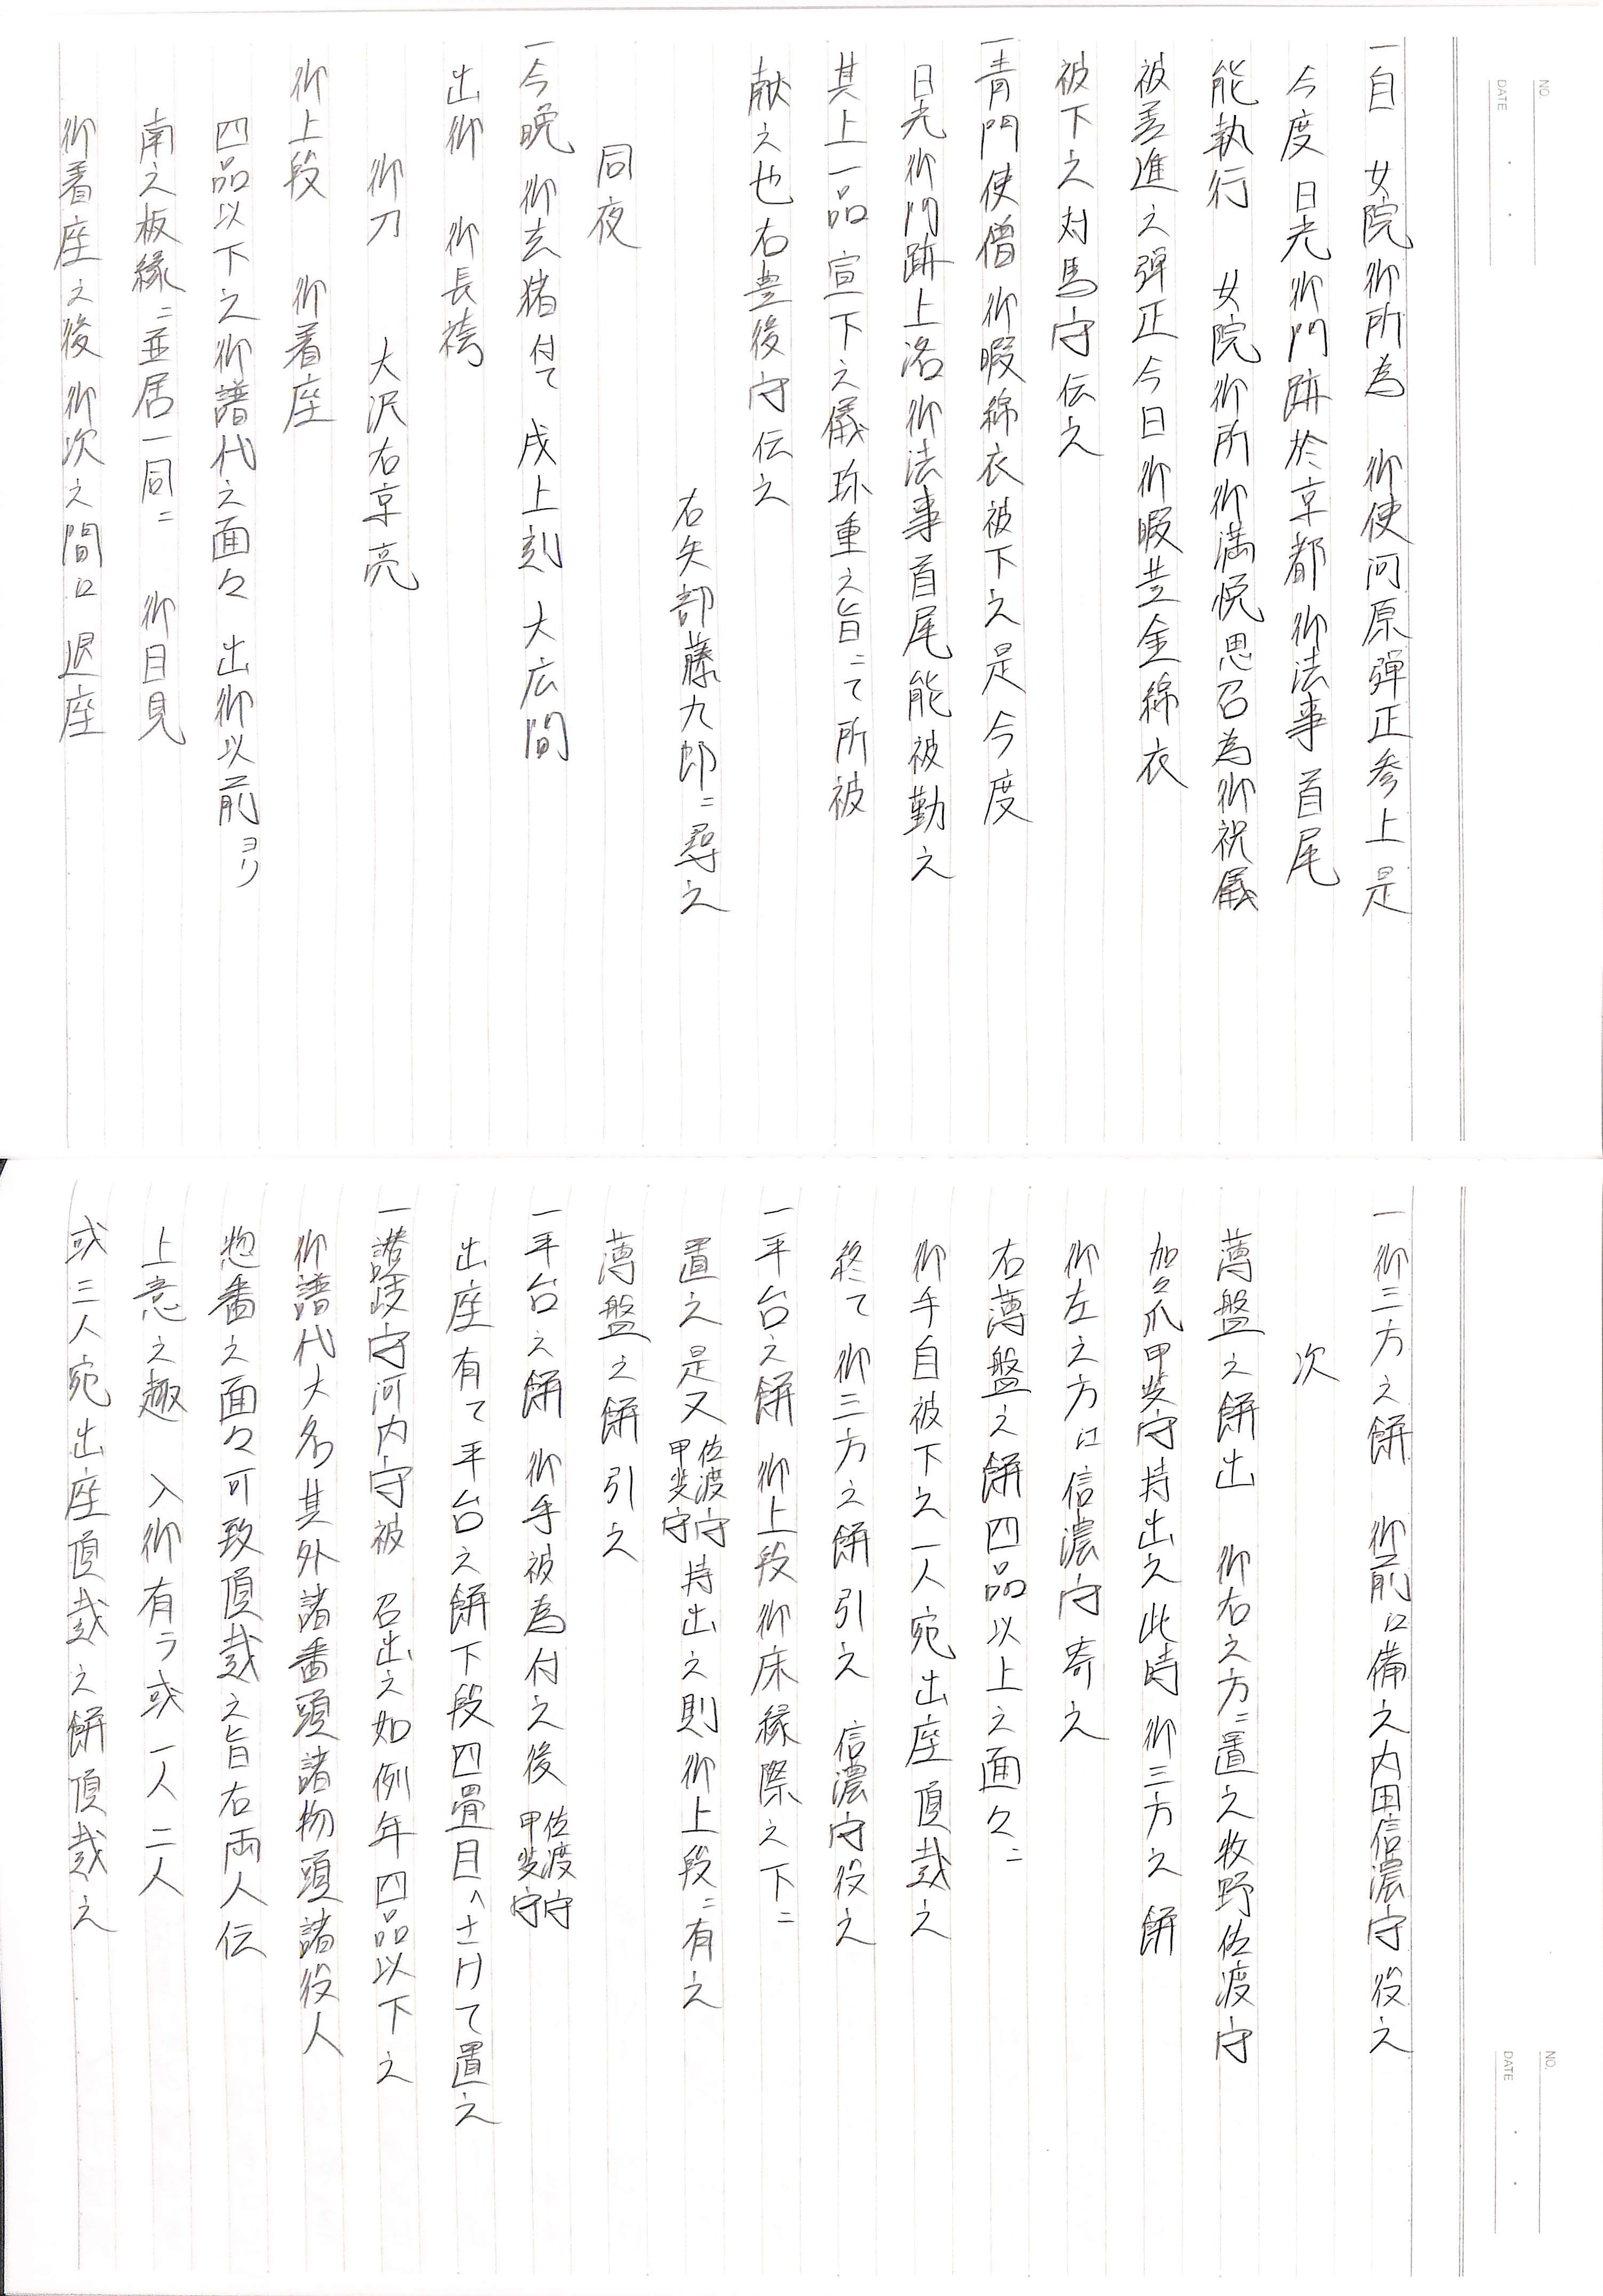 NO.
DATE
一自　女院御所為　御使河原弾正参上是
今度日光御門跡於京都御法事首尾
能執行　女院御所御満悦思召為御祝儀
被差進之弾正今日御暇並金綿衣
被下之対馬守伝之
一青門使僧御暇綿衣被下之是今度
日光御門跡上洛御法事首尾能被勤之
其上一品宣下之儀珍重之旨ニて所被
献之也右豊後守伝之
右矢部藤九郎ニ尋之
同夜
一今晩御玄猪付て戌上刻大広間
出御　御長袴
御刀　大沢右京亮
御上段　御着座
四品以下之御譜代之面々出御以前ヨリ
南之板縁ニ並居一同ニ　御目見
御着座之後御次之間口退座
NO.
DATE
一御三方之餅　御前江備之内田信濃守役之
次
薄盤之餅出　御右之方ニ置之牧野佐渡守
加々爪甲斐守持出之此時御三方之餅
御左之方江信濃守寄之
右薄盤之餅四品以上之面々ニ
御手自被下之一人宛出座頂戴之
終て御三方之餅引之　信濃守役之
一平台之餅　御上段御床縁際之下ニ
置之是又佐渡守甲斐守持出之則御上段ニ有之
薄盤之餅引之
一平台之餅　御手被為付之後佐渡守甲斐守
出座有て平台之餅下段四畳目へ十二月て置之
一讃岐守河内守被　召出之如例年四品以下之
御譜代大名其外諸番頭諸物頭諸役人
惣番之面々可致頂戴之旨右両人伝
上意之趣　入御有ラ或一人二人
或三人宛出座頂戴之餅頂戴之